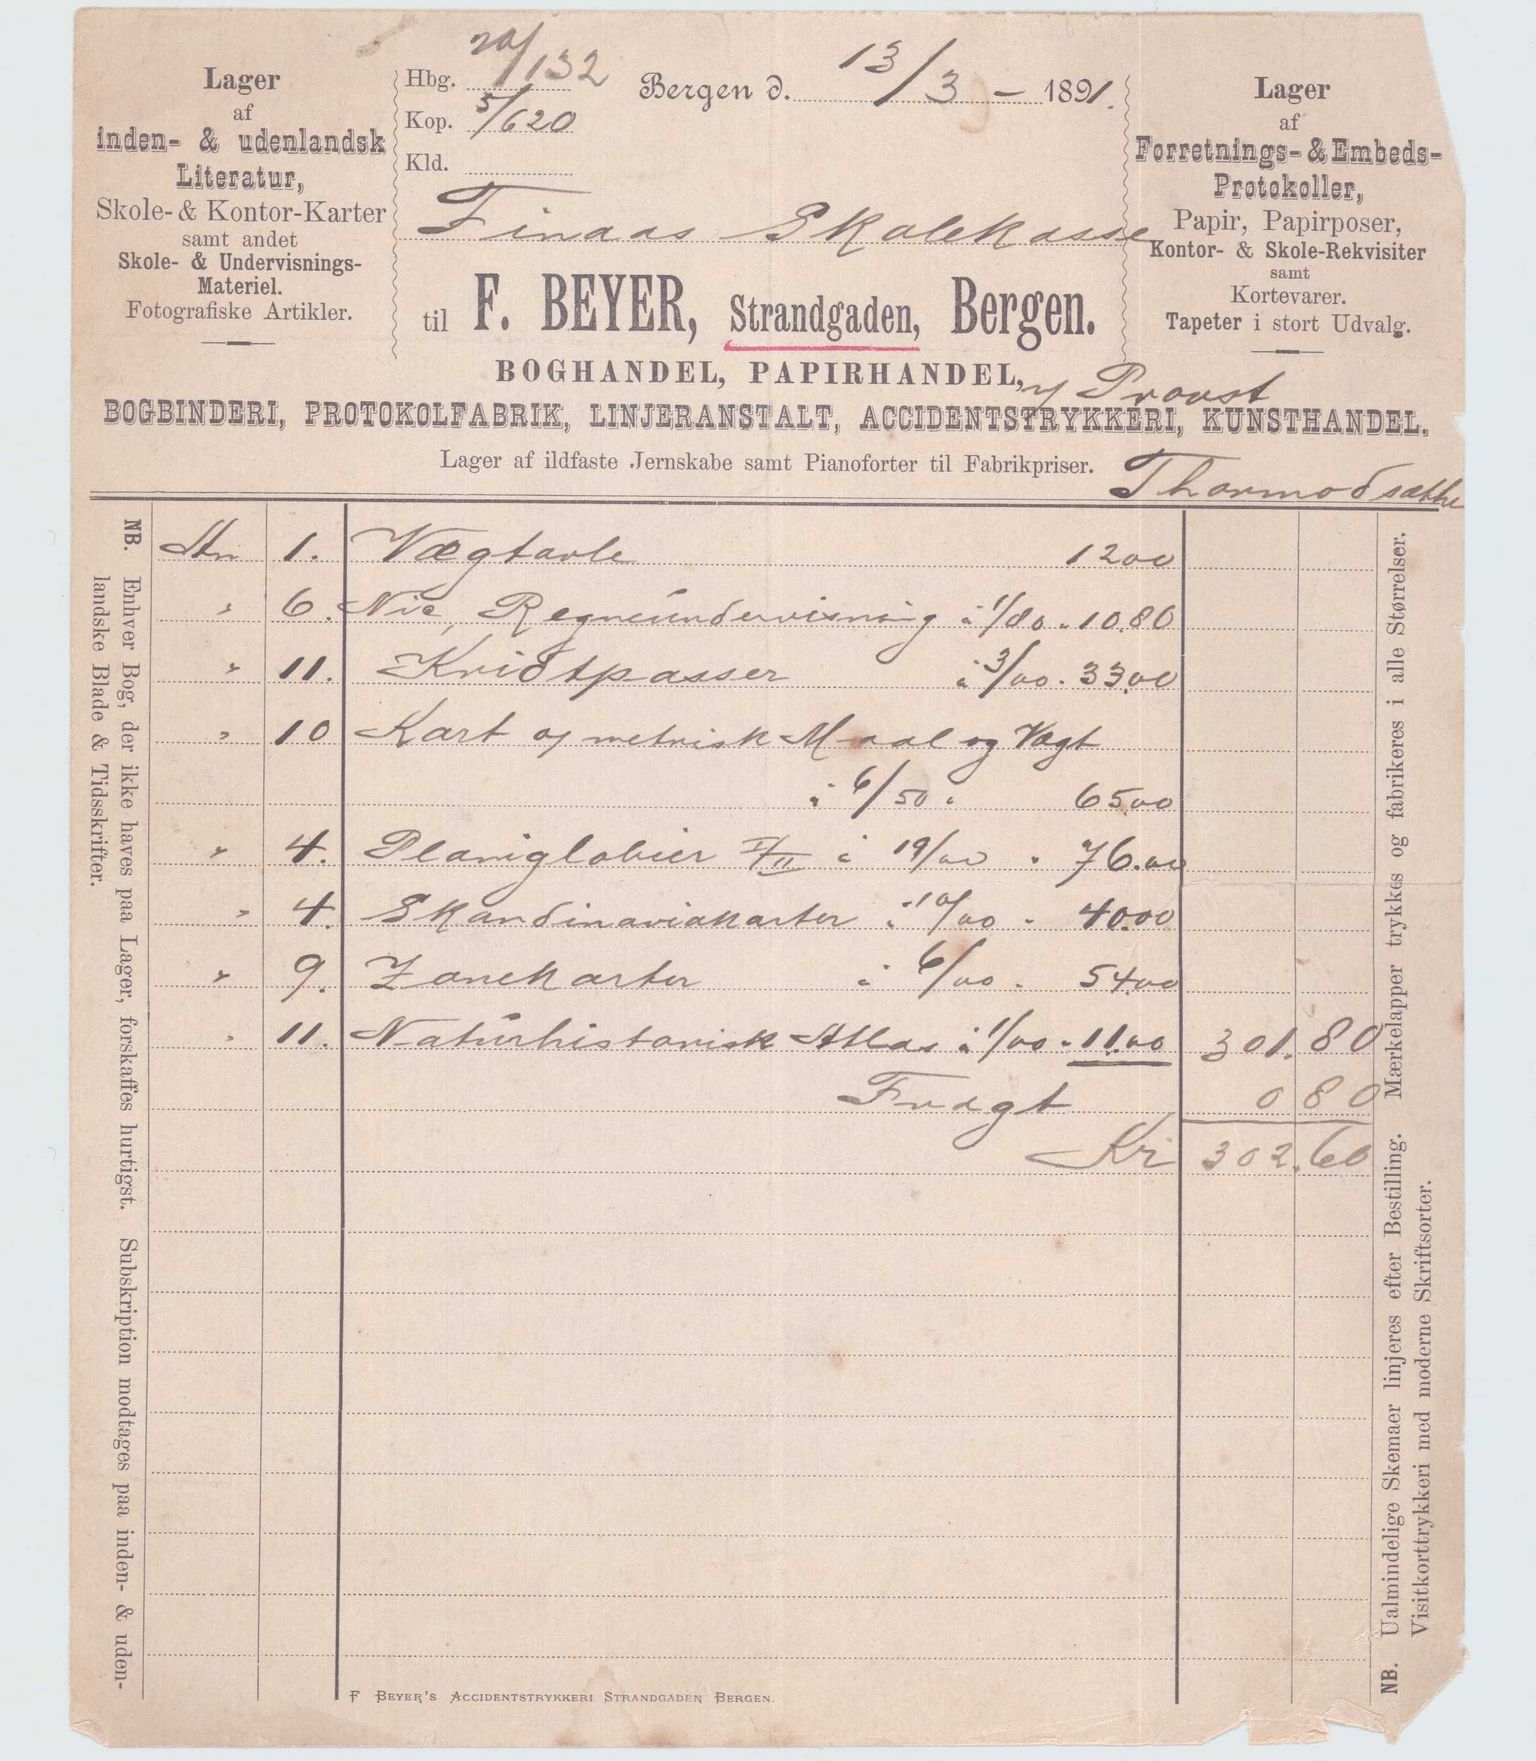 Lager
af
inden- & udenlandsk
Literatur,
Skole- & Kontor-Karter
samt andet
Skole- & Undervisnings-
Materiel.
Fotografiske Artikler.
Hbg. 20/132
Kop. 5/620
Kld.
Bergen d. 13/3 - 1891.
Lager
af
Forretnings- & Embeds-
Protokoller,
Papir, Papirposer,
Kontor- & Skole-Rekvisiter
samt
Kortevarer.
Tapeter i stort Udvalg.
Finaas Skolekasse
til F. BEYER, Strandgaden, Bergen.
BOGHANDEL, PAPIRHANDEL,
v/ Provst
BOGBINDERI, PROTOKOLFABRIK, LINJERANSTALT, ACCIDENTSTRYKKERI, KUNSTHANDEL.
Lager af ildfaste Jernskabe samt Pianoforter til Fabrikpriser.
Thormodsæther
An 1. Vægtavle 1200
" 6. Nic, Regneundervisning à 1/80 " 10.80
" 11. Kridtpasser à 3/00 " 33.00
" 10 Kart og metrisk Maal og Vægt
à 6/50 " 65.00
" 4. Planiglobier I/II à 19/00 " 76.00
" 4. Skandinaviakarter à 10/00 " 40.00
" 9. Zonekarter à 6/00 " 54.00
" 11. Naturhistorisk Atlas à 1/00 " 11.00 301.80
Fragt 0 80
Kr 302.60
NB. Enhver Bog, der ikke haves paa Lager, forskaffes hurtigst. Subskription modtages paa inden- & uden-
landske Blade & Tidsskrifter.
NB. Ualmindelige Skemaer linjeres efter Bestilling. Mærkelapper trykkes og fabrikeres i alle Størrelser.
Visitkorttrykkeri med moderne Skriftsorter.
F BEYER'S ACCIDENTSTRYKKERI STRANDGADEN BERGEN.